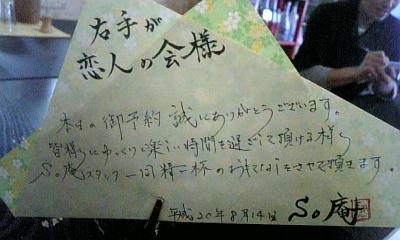 右手が
恋人の会様
本日の御予約誠にありがとうございます。
皆様にゆっくりと楽しい時間を過ごして頂ける様
So庵スタッフ一同精一杯のおもてなしをさせて頂きます。
平成20年8月14日 So庵